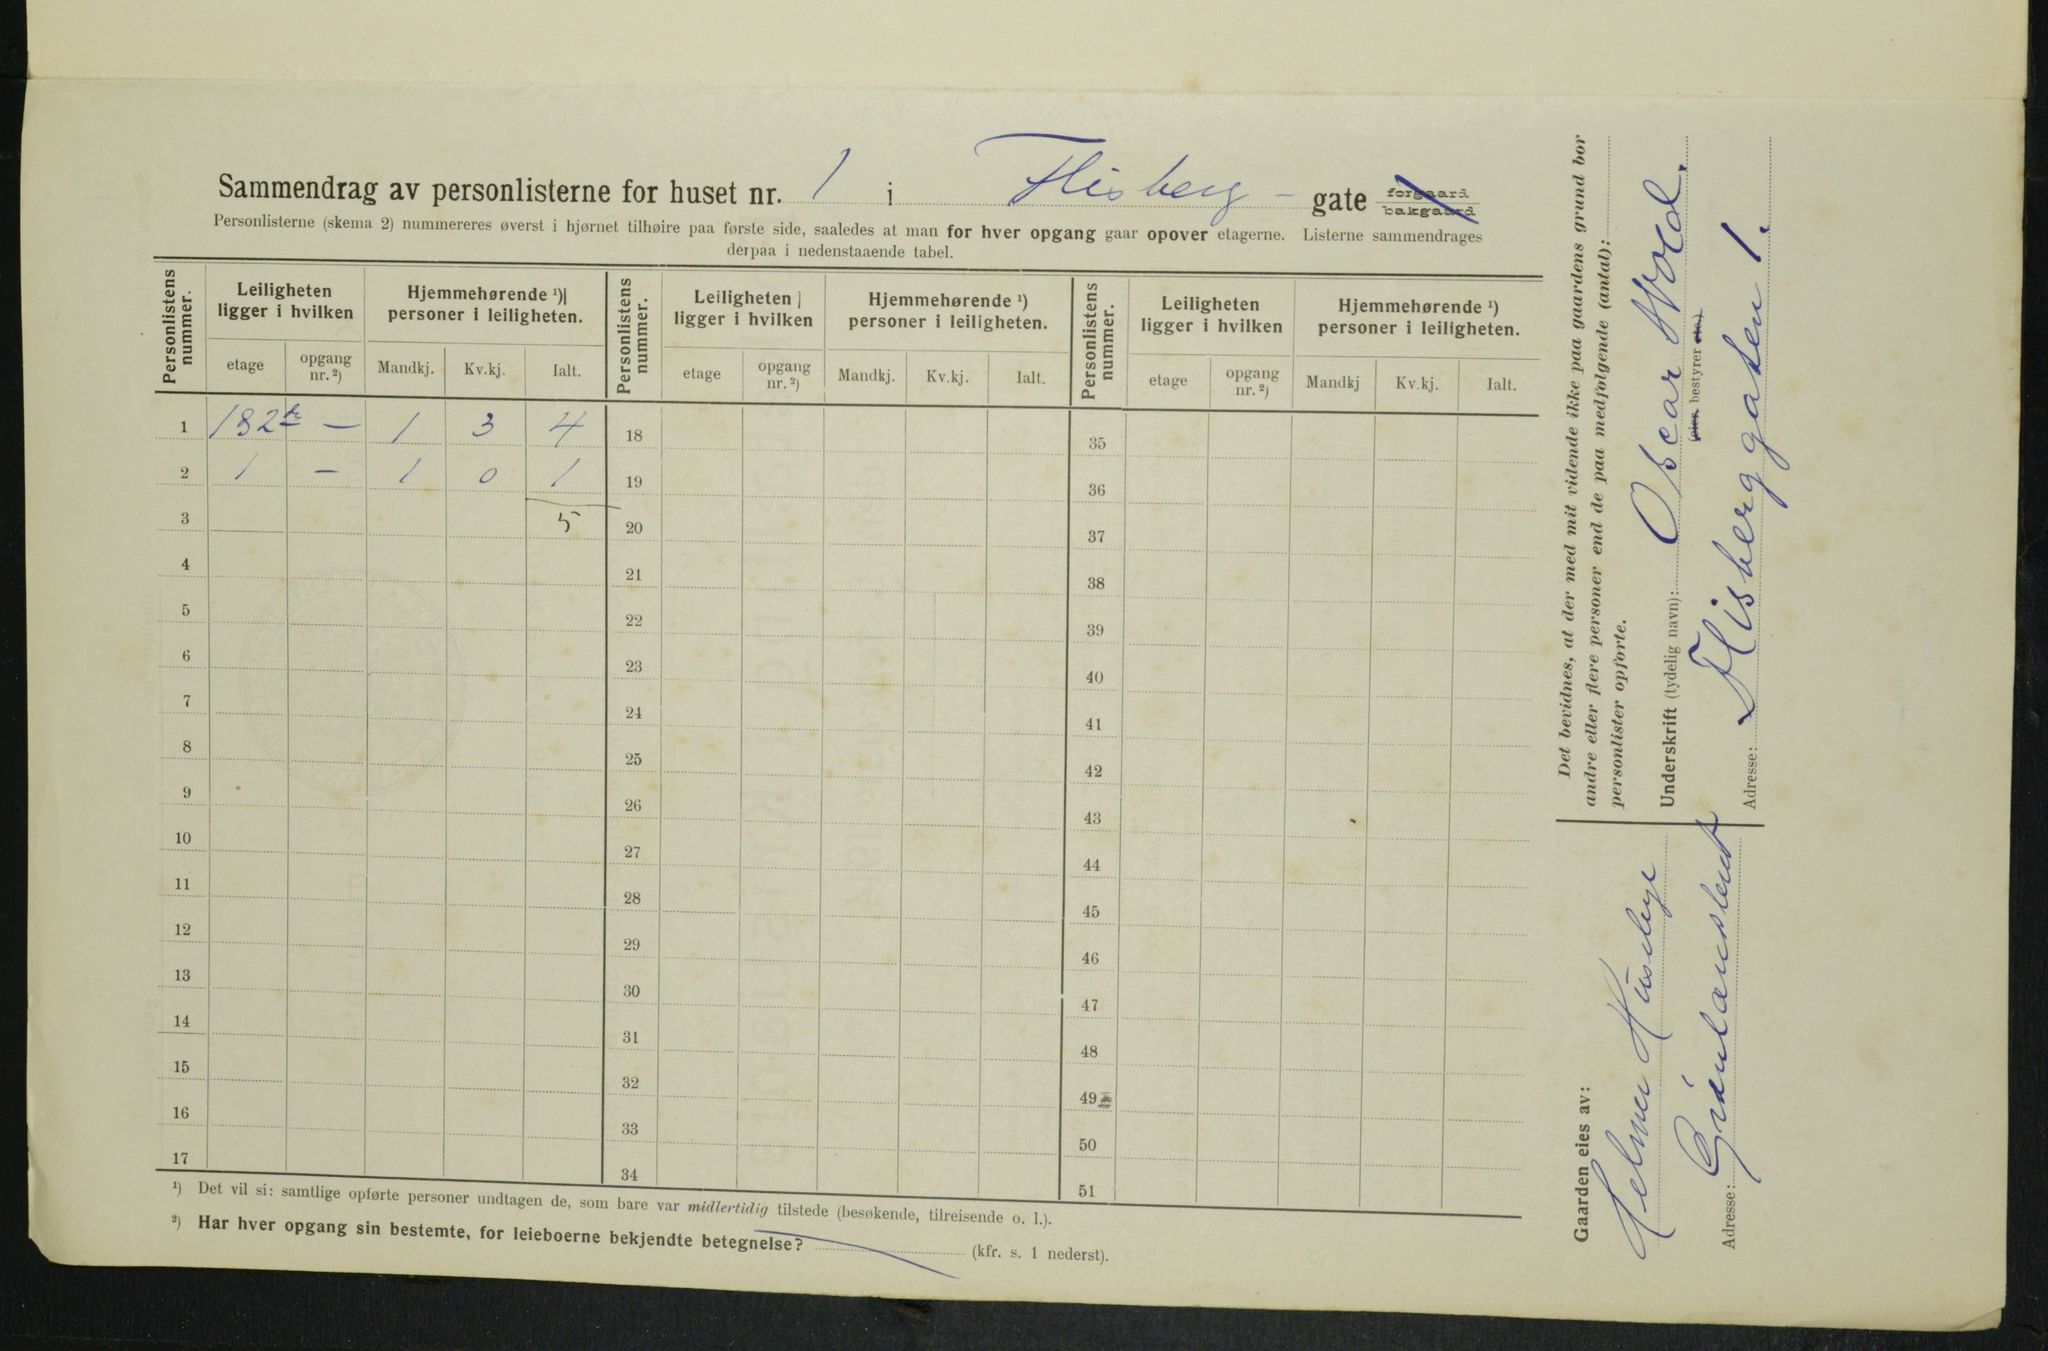 Sammendrag av personlisterne for huset nr. 1 i Flisberg - gate forgaard bakgaard
Personlisterne (skema 2) nummereres øverst i hjørnet tilhøire paa første side, saaledes at man for hver opgang gaar opover etagerne. Listerne sammendrages
derpaa i nedenstaaende tabel.
Personlistens nummer. Leiligheten ligger i hvilken Hjemmehørende ¹) personer i leiligheten. Personlistens nummer. Leiligheten ligger i hvilken Hjemmehørende ¹) personer i leiligheten. Personlistens nummer. Leiligheten ligger i hvilken Hjemmehørende ¹) personer i leiligheten.
etage opgang nr. ²) Mandkj. Kv.kj. Ialt. etage opgang nr. ²) Mandkj. Kv.kj. Ialt. etage opgang nr. ²) Mandkj Kv.kj. Ialt.
1 — 1 3 4 18 35
2 1 — 1 0 1 19 36
3 5 20 37
4 21 38
5 22 39
6 23 40
7 24 41
8 25 42
9 26 43
10 27 44
11 28 45
12 29 46
13 30 47
14 31 48
15 32 49
16 33 50
17 34 51
¹) Det vil si: samtlige opførte personer undtagen de, som bare var midlertidig tilstede (besøkende, tilreisende o. l.).
²) Har hver opgang sin bestemte, for leieboerne bekjendte betegnelse? (kfr. s. 1 nederst).
Det bevidnes, at der med mit vidende ikke paa gaardens grund bor
andre eller flere personer end de paa medfølgende (antal):
personlister opførte.
Underskrift (tydelig navn): Oscar Wold.
(eier, bestyrer etc.)
Adresse: Flisberggaten 1.
Gaarden eies av:
Helmer Huseby
Adresse: